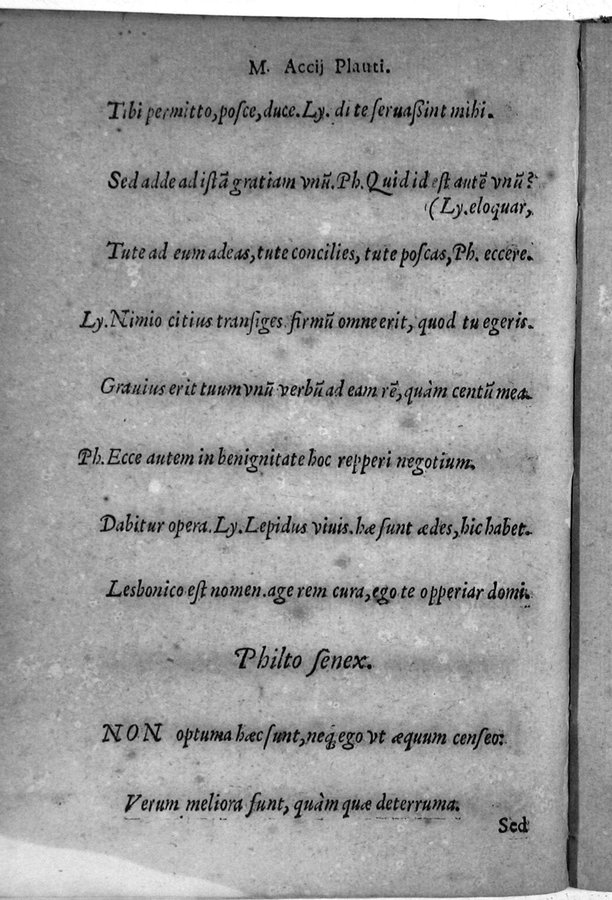 M. Accij Plauti.
Tibi permitto, posce, duce. Ly. di te seruaßint mihi.
Sed adde ad istã gratiam vnũ. Ph. Quid id est autẽ vnũ?
(Ly. eloquar,
Tute ad eum adeas, tute concilies, tute poscas, Ph. eccere.
Ly. Nimio citius transiges firmũ omne erit, quod tu egeris.
Grauius erit tuum vnũ verbũ ad eam rẽ, quàm centũ mea.
Ph. Ecce autem in benignitate hoc repperi negotium.
Dabitur opera. Ly. Lepidus viuis. hæ sunt ædes, hic habet.
Lesbonico est nomen. age rem cura, ego te opperiar domi.
Philto senex.
NON optuma hæc sunt, neq; ego vt æquum censeo:
Verum meliora sunt, quàm quæ deterruma.
Sed